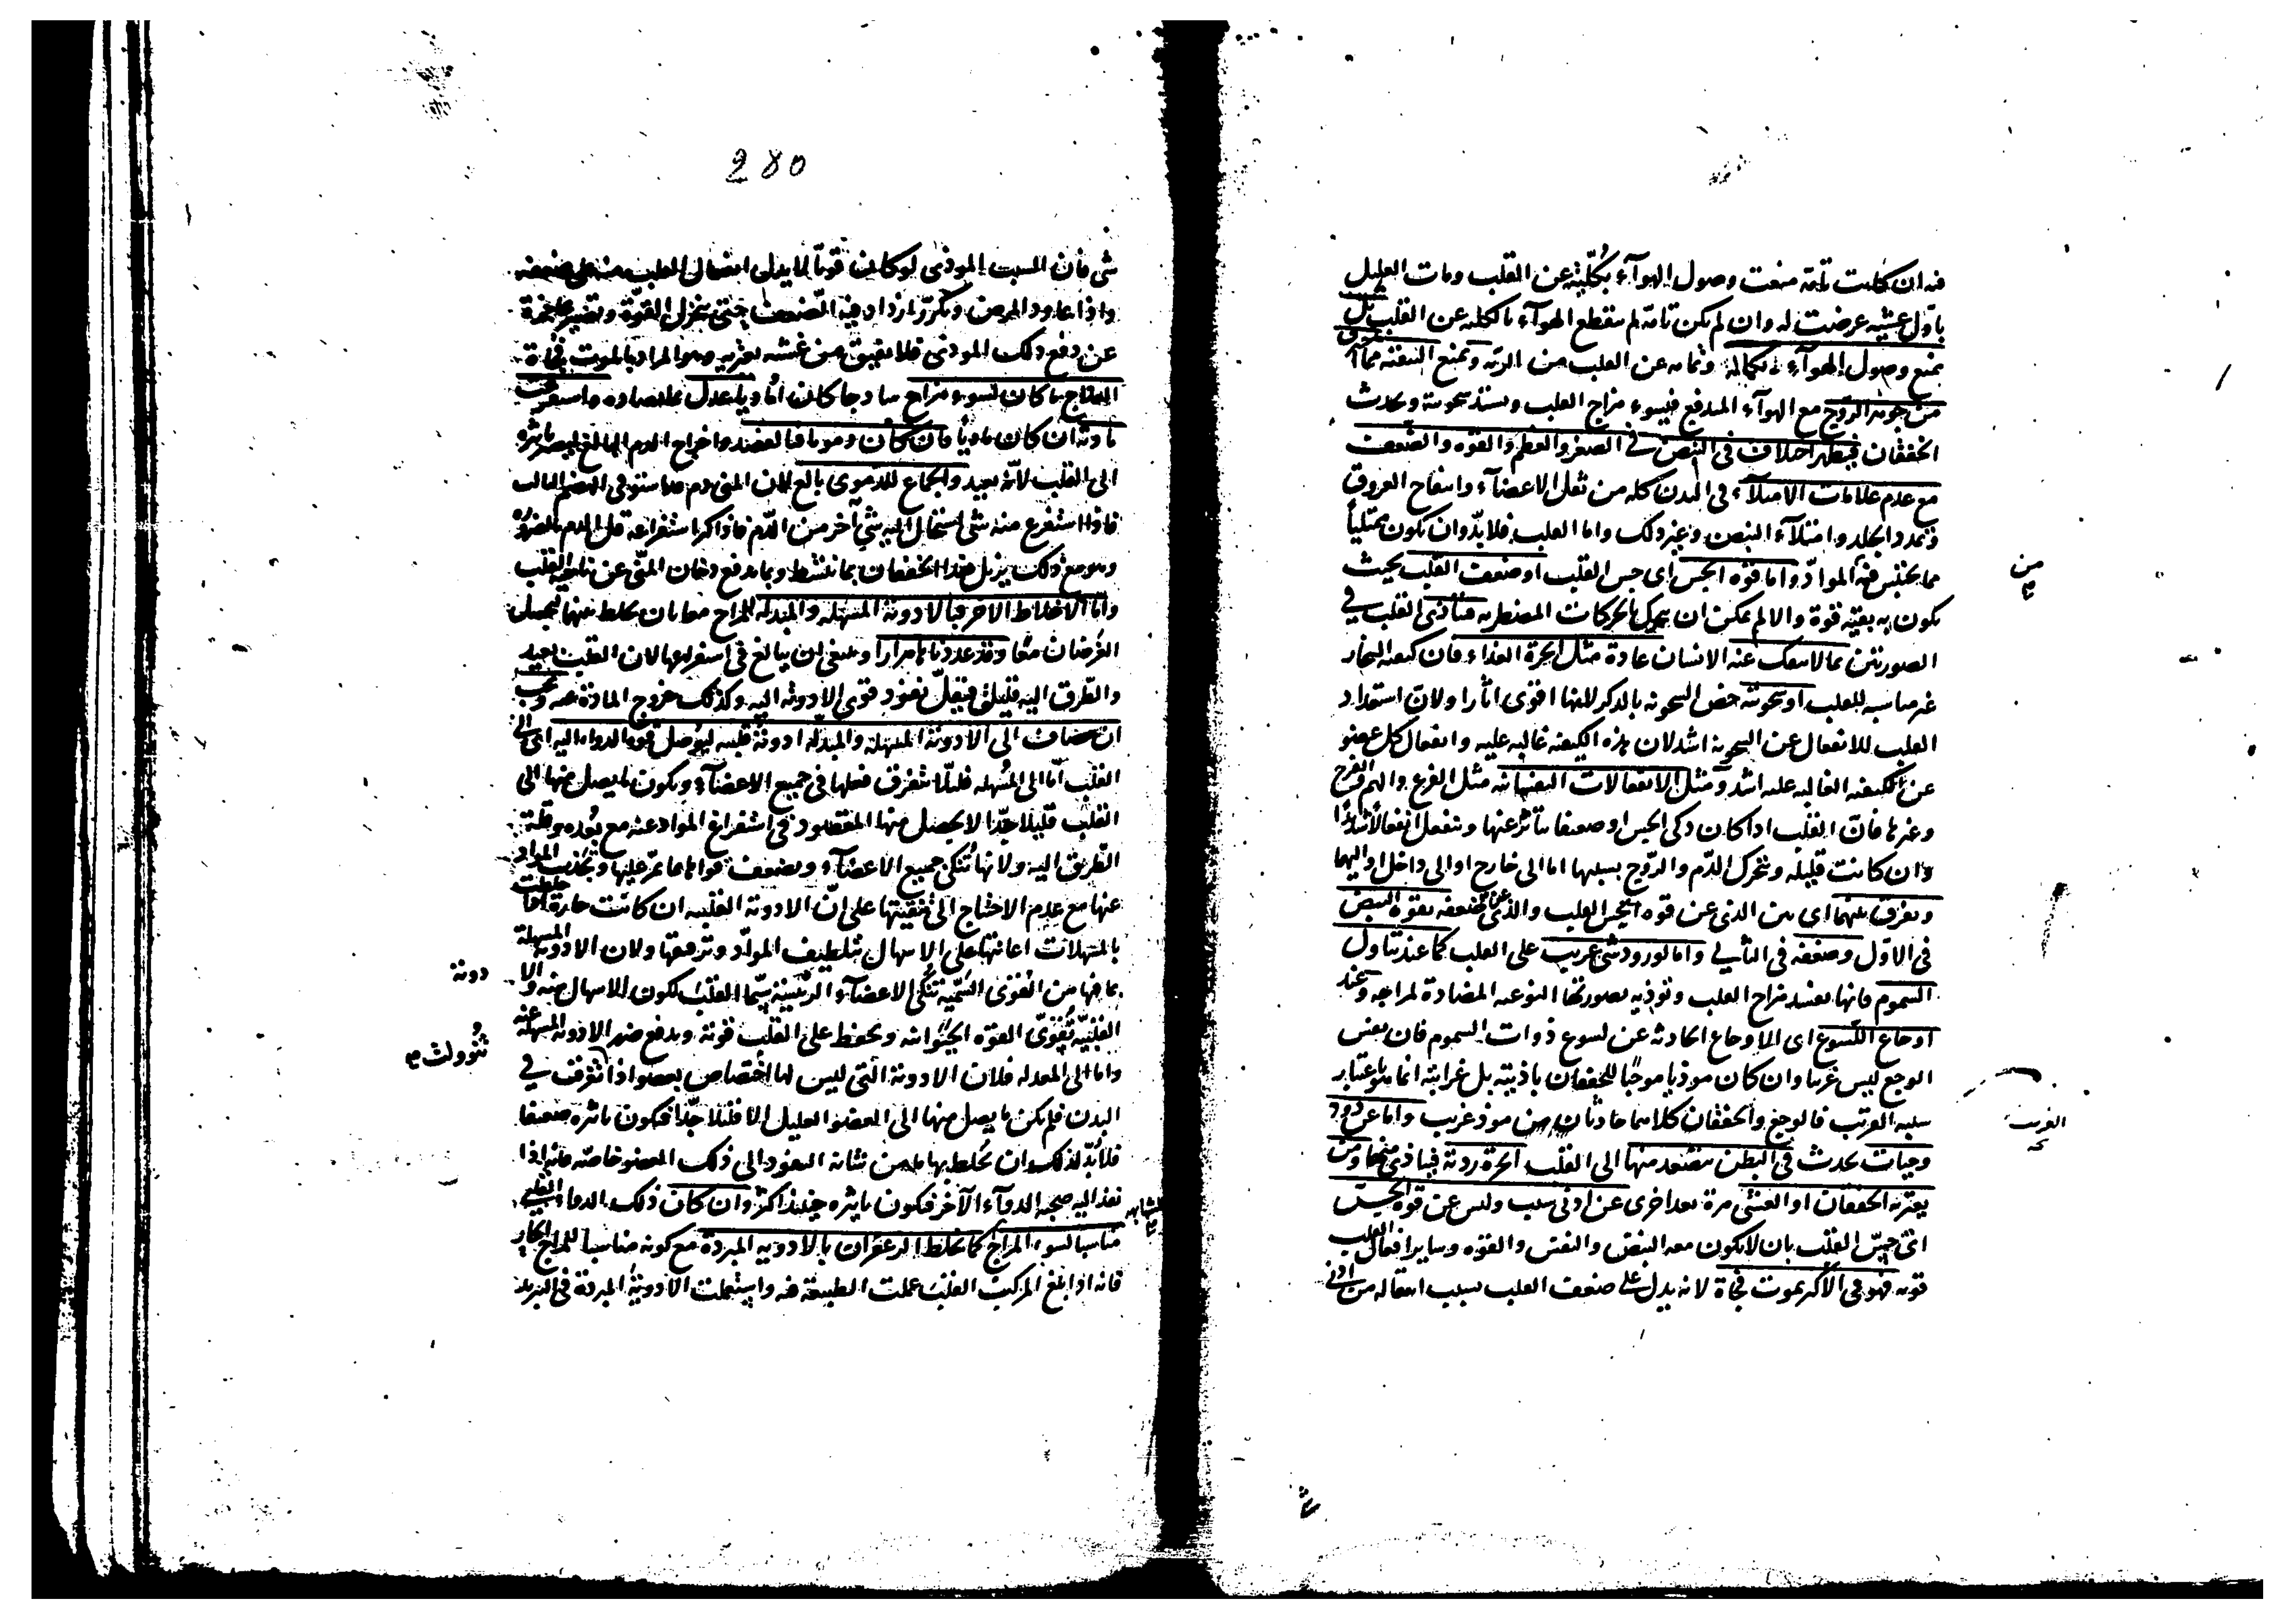 فيه ان كانت تامة منعت وصول الهوآء بكليته عن القلب ومات العليل
باول غشية عرضت له وان لم يكن تامة لم ينقطع الهوآء بالكلية عن القلب بل
يمنع وصول الهوآء بكماله وتمامه عن القلب من الرية ويمنع
من جوهر الروح مع الهوآء المندفع فيسوء مزاج القلب ويشتد سخونته ويحدث
الخفقان فيظهر اختلاف في النبض في الصغر والعظم والقوة والضعف
مع عدم علامات الامتلآء في البدن كله من ثقل الاعضآء وانتفاخ العروق
وتمدد الجلد وامتلآء النبض وغير ذلك واما القلب فلا بد وان يكون ممتليأ
مما يحتبس فيه المواد واما قوة الحس اى حس القلب او ضعف القلب بحيث
يكون به بقية قوة والا لم يمكن ان يتحرك بالحركات المضطربة فيتأذى القلب في
الصورتين بما لا ينفك عنه الانسان عادة مثل ابخرة الغذاء فان كيفية البخار
غير مناسبة للقلب او سخونته خص السخونة بالذكر لانها اقوى اثارا ولان استعداد
القلب للانفعال عن السخونة اشد لان هذه الكيفية غالبة عليه وانفعال كل عضو
عن الكيفية الغالبة عليه اشد ومثل الانفعالات النفسانية مثل الفزع والهم والفرح
وغيرها فان القلب اذا كان ذكى الحس او ضعيفا يتأثر عنها وينفعل انفعالا شديدا
وان كانت قليلة ويتحرك الدم والروح بسببها اما الى خارج او الى داخل او اليهما
ويفرق بينهما اى بين الذى عن قوة حس القلب والذى عن ضعفه بقوة النبض
في الاول وضعفه في الثاني واما لورود شئ غريب على القلب كما عند تناول
السموم فانها يفسد مزاج القلب وتوذيه بصورتها النوعية المضادة لمزاجه وعند
اوجاع اللسوع اى الاوجاع الحادثة عن لسوع ذوات السموم فان نفس
الوجع ليس غريبا وان كان موذيا موجبا للخفقان باذيته بل غرابته انما هو باعتبار
سببه القريب فالوجع والخفقان كلاهما حادثان من موذ غريب واما عن دود
وحيات يحدث في البطن فيتصعد منها الى القلب ابخرة ردية فيتأذى منها ومن
يعتريه الخفقان او الغشى مرة بعد اخرى عن ادنى سبب وليس عن قوة الحس
اى حس القلب بان لا يكون معه النبض والنفس والقوة وساير افعال القلب
قوية فهو في الاكثر يموت فجأة لانه يدل على ضعف القلب بسبب انفعاله من ادنى
من
الغريب
280
شئ فان السبب الموذى لو كان قويا لما يدل انفعال القلب منه على ضعفه
واذا عاود المرض وتكرر ازداد فيه الضعف حتى ينخزل القوة وتصير عاجزة
عن دفع ذلك الموذى فلا يفيق من غشية يعتريه وهو المراد بالموت فجأة
العلاج ما كان لسوء مزاج ساذجا كان او ماديا يعدل بما يضاده واستفرغت
مادته ان كان ماديا فان كان دمويا فبالفصد واخراج الدم البالغ ليصل تاثيره
الى القلب لانه بعيد والجماع للدموى بالغ لان المنى دم استوفى الهضم
فاذا استفرغ منه شئ استحال اليه شئ آخر من الدم فاذا كثر استفراغه قل الدم بالضرورة
وهو مع ذلك يزيل هذا الخفقان بما ينشط وبما يدفع دخان المنى عن ناحية القلب
واما الاخلاط الاخر فبالادوية المسهلة والمبدلة للمزاج معا بان يخلط بينهما ليحصل
الغرضان معا وقد عددناها مرارا وينبغى ان يبالغ في استفراغها لان القلب بعيد
والطرق اليه قليلة فيقل نفوذ قوى الادوية اليه وكذلك خروج المادة عنه ويجب
ان يضاف الى الادوية المسهلة والمبدلة ادوية قلبية ليوصل قوة الدواء اليه اى الى
القلب اما الى المسهلة فلما يتفرق فعلها في جميع الاعضآء ويكون ما يصل منها الى
القلب قليلا جدا لا يحصل منها المقصود في استفراغ المواد عنه مع بعده وقلة
الطريق اليه ولانها تنكى جميع الاعضآء ويضعف قواها مما تمر عليها وتجذب المواد
عنها مع عدم الاحتياج الى تنقيتها على ان الادوية القلبية ان كانت حارة خلطت
بالمسهلات اعانتها على الاسهال بتلطيف المواد وترقيقها ولان الادوية المسهلة
بما فيها من القوى السمية تنكى الاعضآء الرئيسة سيما القلب لكون الاسهال منه والا
دوية
القلبية تقوى القوة الحيوانية ويحفظ على القلب قوته ويدفع ضرر الادوية المسهلة عنه
واما الى المعدلة فلان الادوية التى ليس لها اختصاص بعضو اذا تفرقت في
البدن فلم يكن ما يصل منها الى العضو العليل الا قليلا جدا فيكون تاثيره ضعيفا
فلا بد لذلك وان يخلط بها ما من شانه النفوذ الى ذلك العضو خاصة فانه اذا
نفذ اليه صحبه الدوآء الآخر فيكون تاثيره حينئذ اكثر وان كان ذلك الدواء القلبى
مناسبا لسوء المزاج كما يخلط الزعفران بالادوية المبردة مع كونه مناسبا للمزاج الحار
فانه اذا بلغ المركب القلب عملت الطبيعة فيه واستعملت الادوية المبردة في التبريد